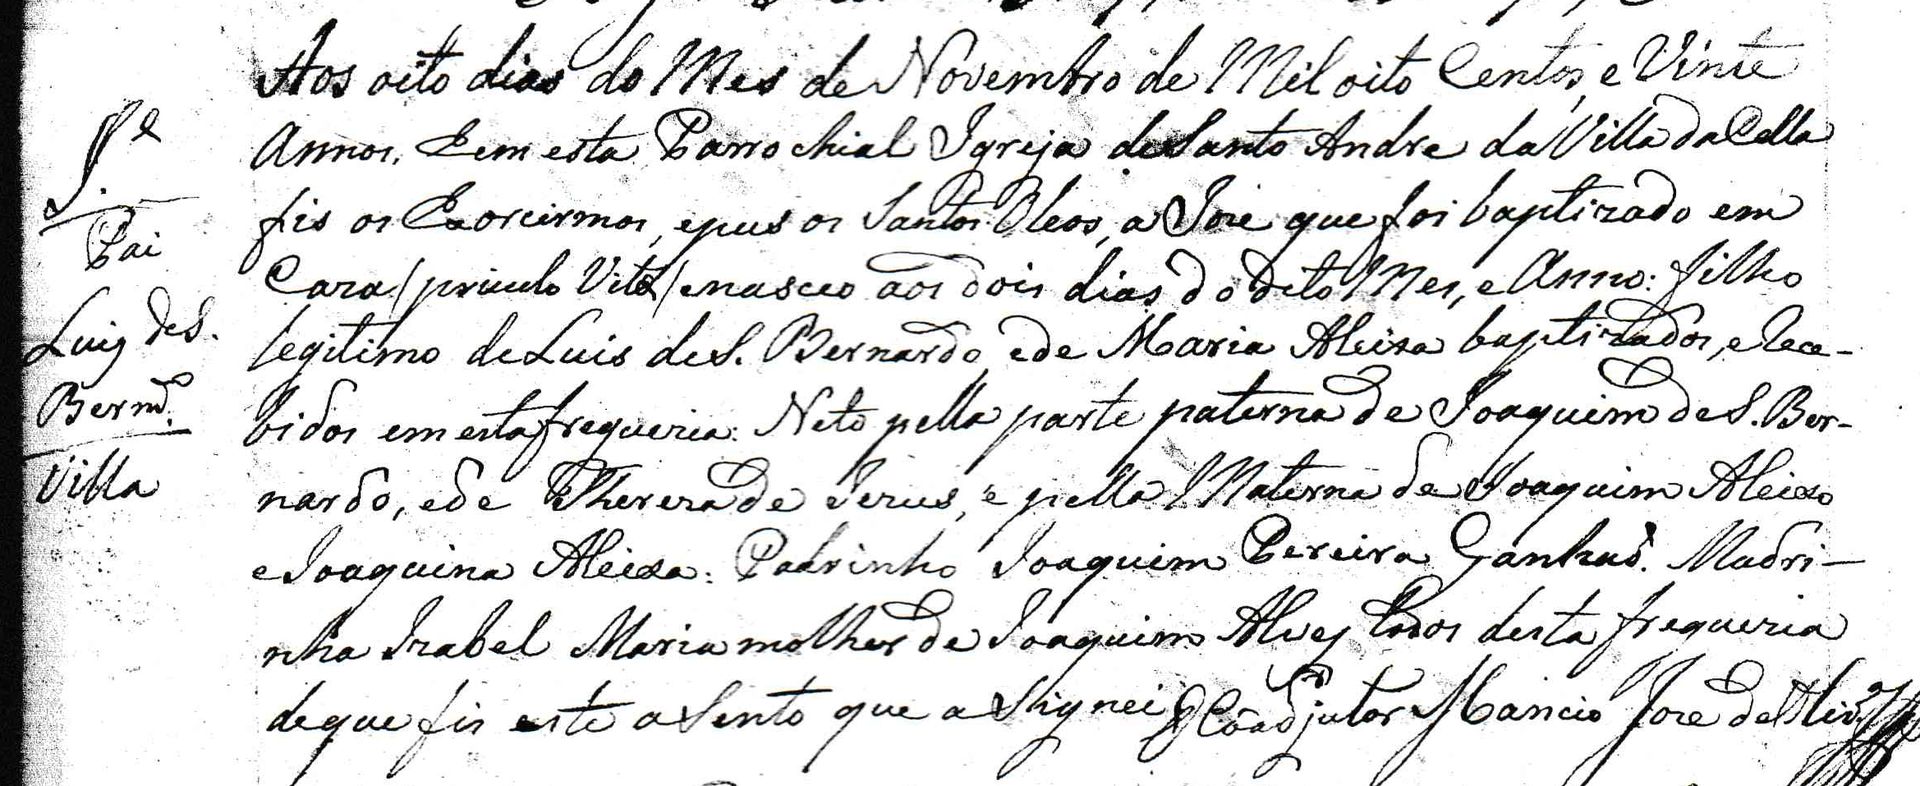 Aos oito dias do Mes de Novembro de Mil oito Centos, e Vinte
Annos. Eem esta Parrochial Igreja de Santo Andre da Villa da Cella
fis os Exorcismos, epus os Santos Oleos, a Joze que foi baptizado em
Caza (priculo Vitæ) enasceo aos dois dias do dito Mes, e Anno: filho
legitimo de Luis de S. Bernardo, ede Maria Aleixa baptizados, e Rece-
bidos em esta freguezia: Neto pella parte paterna de Joaquim de S. Ber-
nardo, ede Thereza de Jezus, e pella Materna de Joaquim Aleixo
e Joaquina Aleixa: Padrinho Joaquim Pereira Ganhaõ. Madri-
nha Izabel Maria molher de Joaquim Alvez todos desta freguezia
de que fis este aSento que aSsignei O Coadjutor Mancio Joze de
Je
Pai
Luiz de S.
Bernd.º
Villa